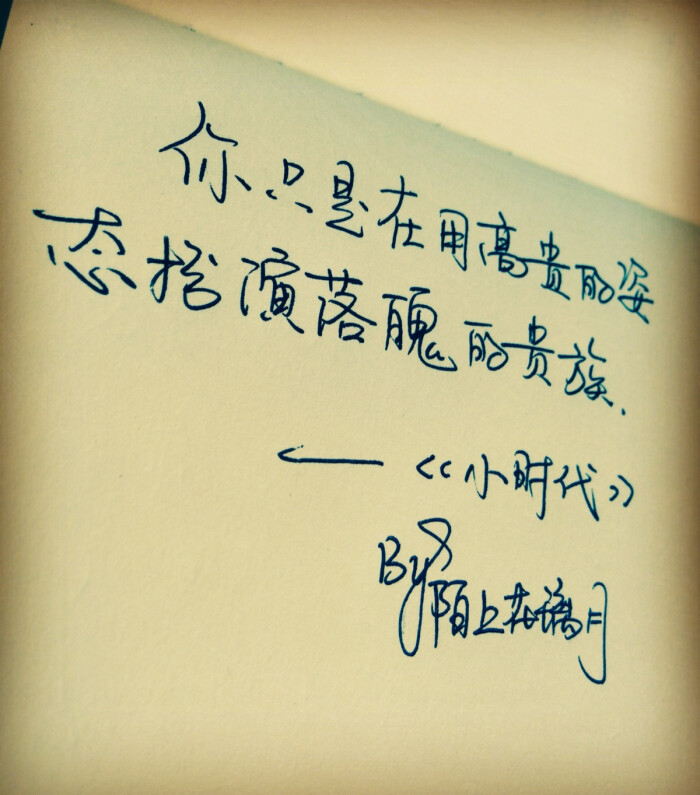 你只是在用高贵的姿
态扮演落魄的贵族.
—《小时代》
By 陌上花璃月